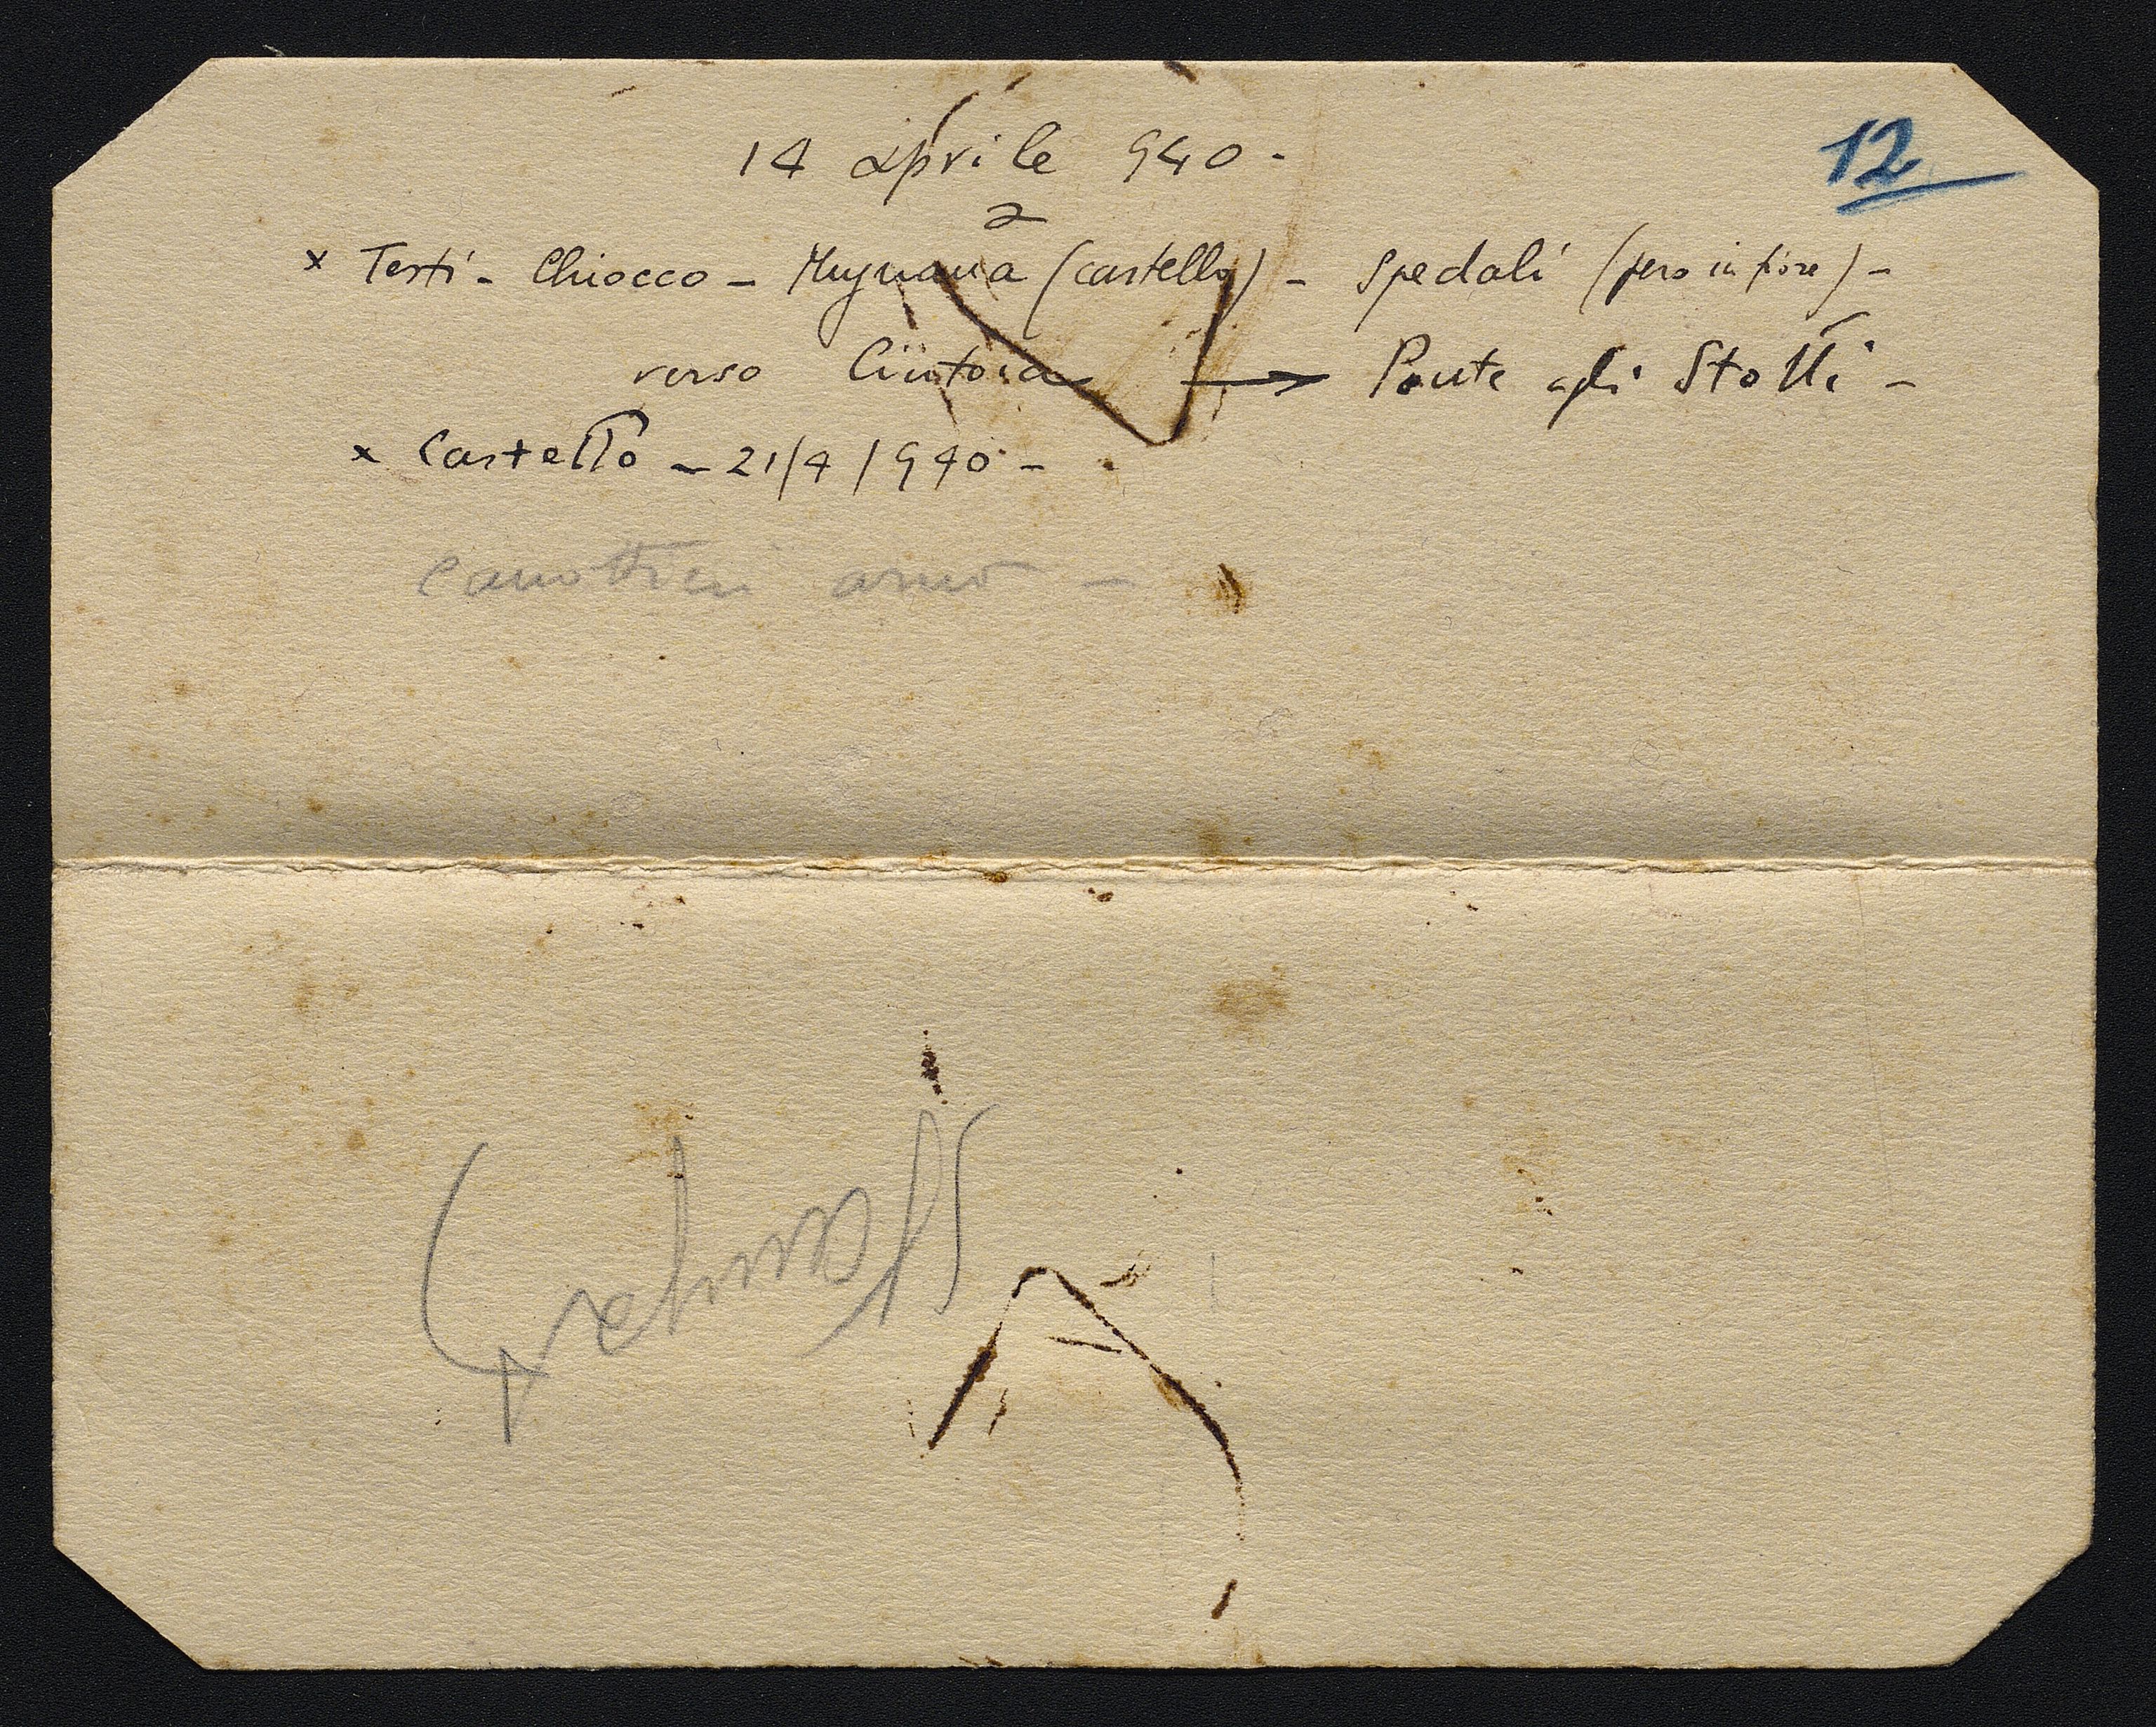 14 aprile 940 -
12
2
x Testi - Chiocco - Mugnana (castello) - Spedali (pero in fiore) -
verso Cintoia → Ponte agli Stolli -
x Castello - 21/4/940 -
canottieri arno -